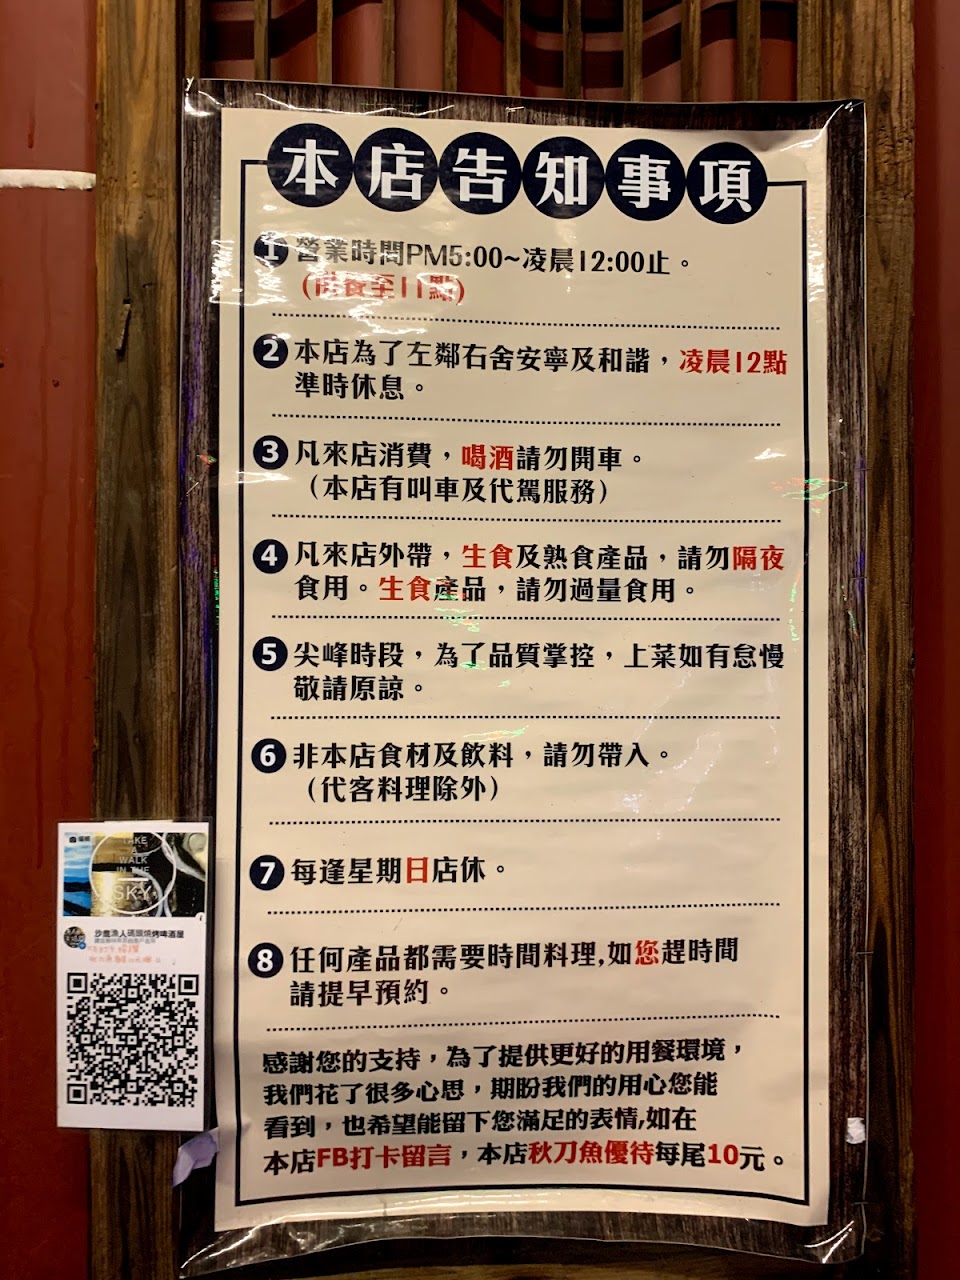 本店告知事項
1 營業時間PM5:00~凌晨12:00止。
(供食至11點)
2 本店為了左鄰右舍安寧及和諧，凌晨12點
準時休息。
3 凡來店消費，喝酒請勿開車。
（本店有叫車及代駕服務）
4 凡來店外帶，生食及熟食產品，請勿隔夜
食用。生食產品，請勿過量食用。
5 尖峰時段，為了品質掌控，上菜如有怠慢
敬請原諒。
6 非本店食材及飲料，請勿帶入。
（代客料理除外）
7 每逢星期日店休。
8 任何產品都需要時間料理,如您趕時間
請提早預約。
感謝您的支持，為了提供更好的用餐環境，
我們花了很多心思，期盼我們的用心您能
看到，也希望能留下您滿足的表情,如在
本店FB打卡留言，本店秋刀魚優待每尾10元。
TAKE
A
WALK
IN THE
SKY
沙鹿漁人碼頭燒烤啤酒屋